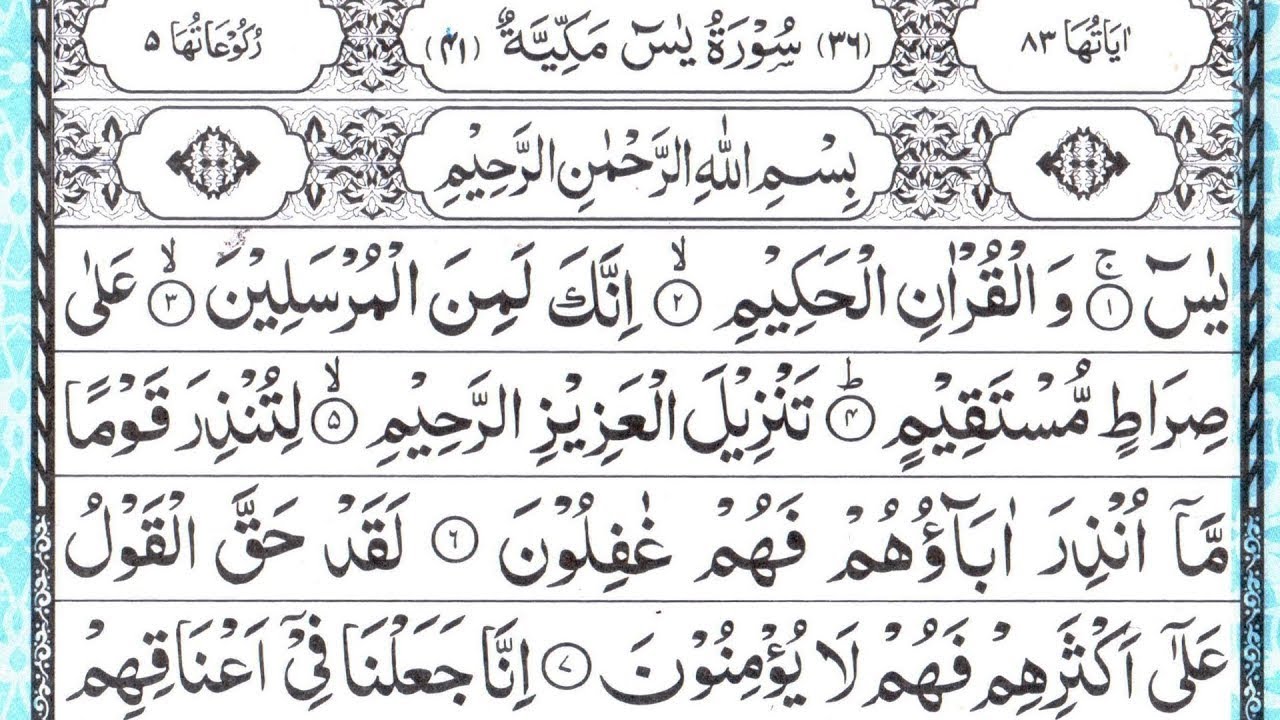 اٰيَاتُهَا ٨٣ (٣٦) سُوْرَةُ يٰسٓ مَكِّيَّةٌ (٤١) رُكُوْعَاتُهَا ٥
بِسْمِ اللّٰهِ الرَّحْمٰنِ الرَّحِيْمِ
يٰسٓ ۚ ۝١ وَ الْقُرْاٰنِ الْحَكِيْمِ ۙ ۝٢ اِنَّكَ لَمِنَ الْمُرْسَلِيْنَ ۙ ۝٣ عَلٰى
صِرَاطٍ مُّسْتَقِيْمٍ ؕ ۝٤ تَنْزِيْلَ الْعَزِيْزِ الرَّحِيْمِ ۙ ۝٥ لِتُنْذِرَ قَوْمًا
مَّاۤ اُنْذِرَ اٰبَآؤُهُمْ فَهُمْ غٰفِلُوْنَ ۝٦ لَقَدْ حَقَّ الْقَوْلُ
عَلٰۤى اَكْثَرِهِمْ فَهُمْ لَا يُؤْمِنُوْنَ ۝٧ اِنَّا جَعَلْنَا فِيْۤ اَعْنَاقِهِمْ